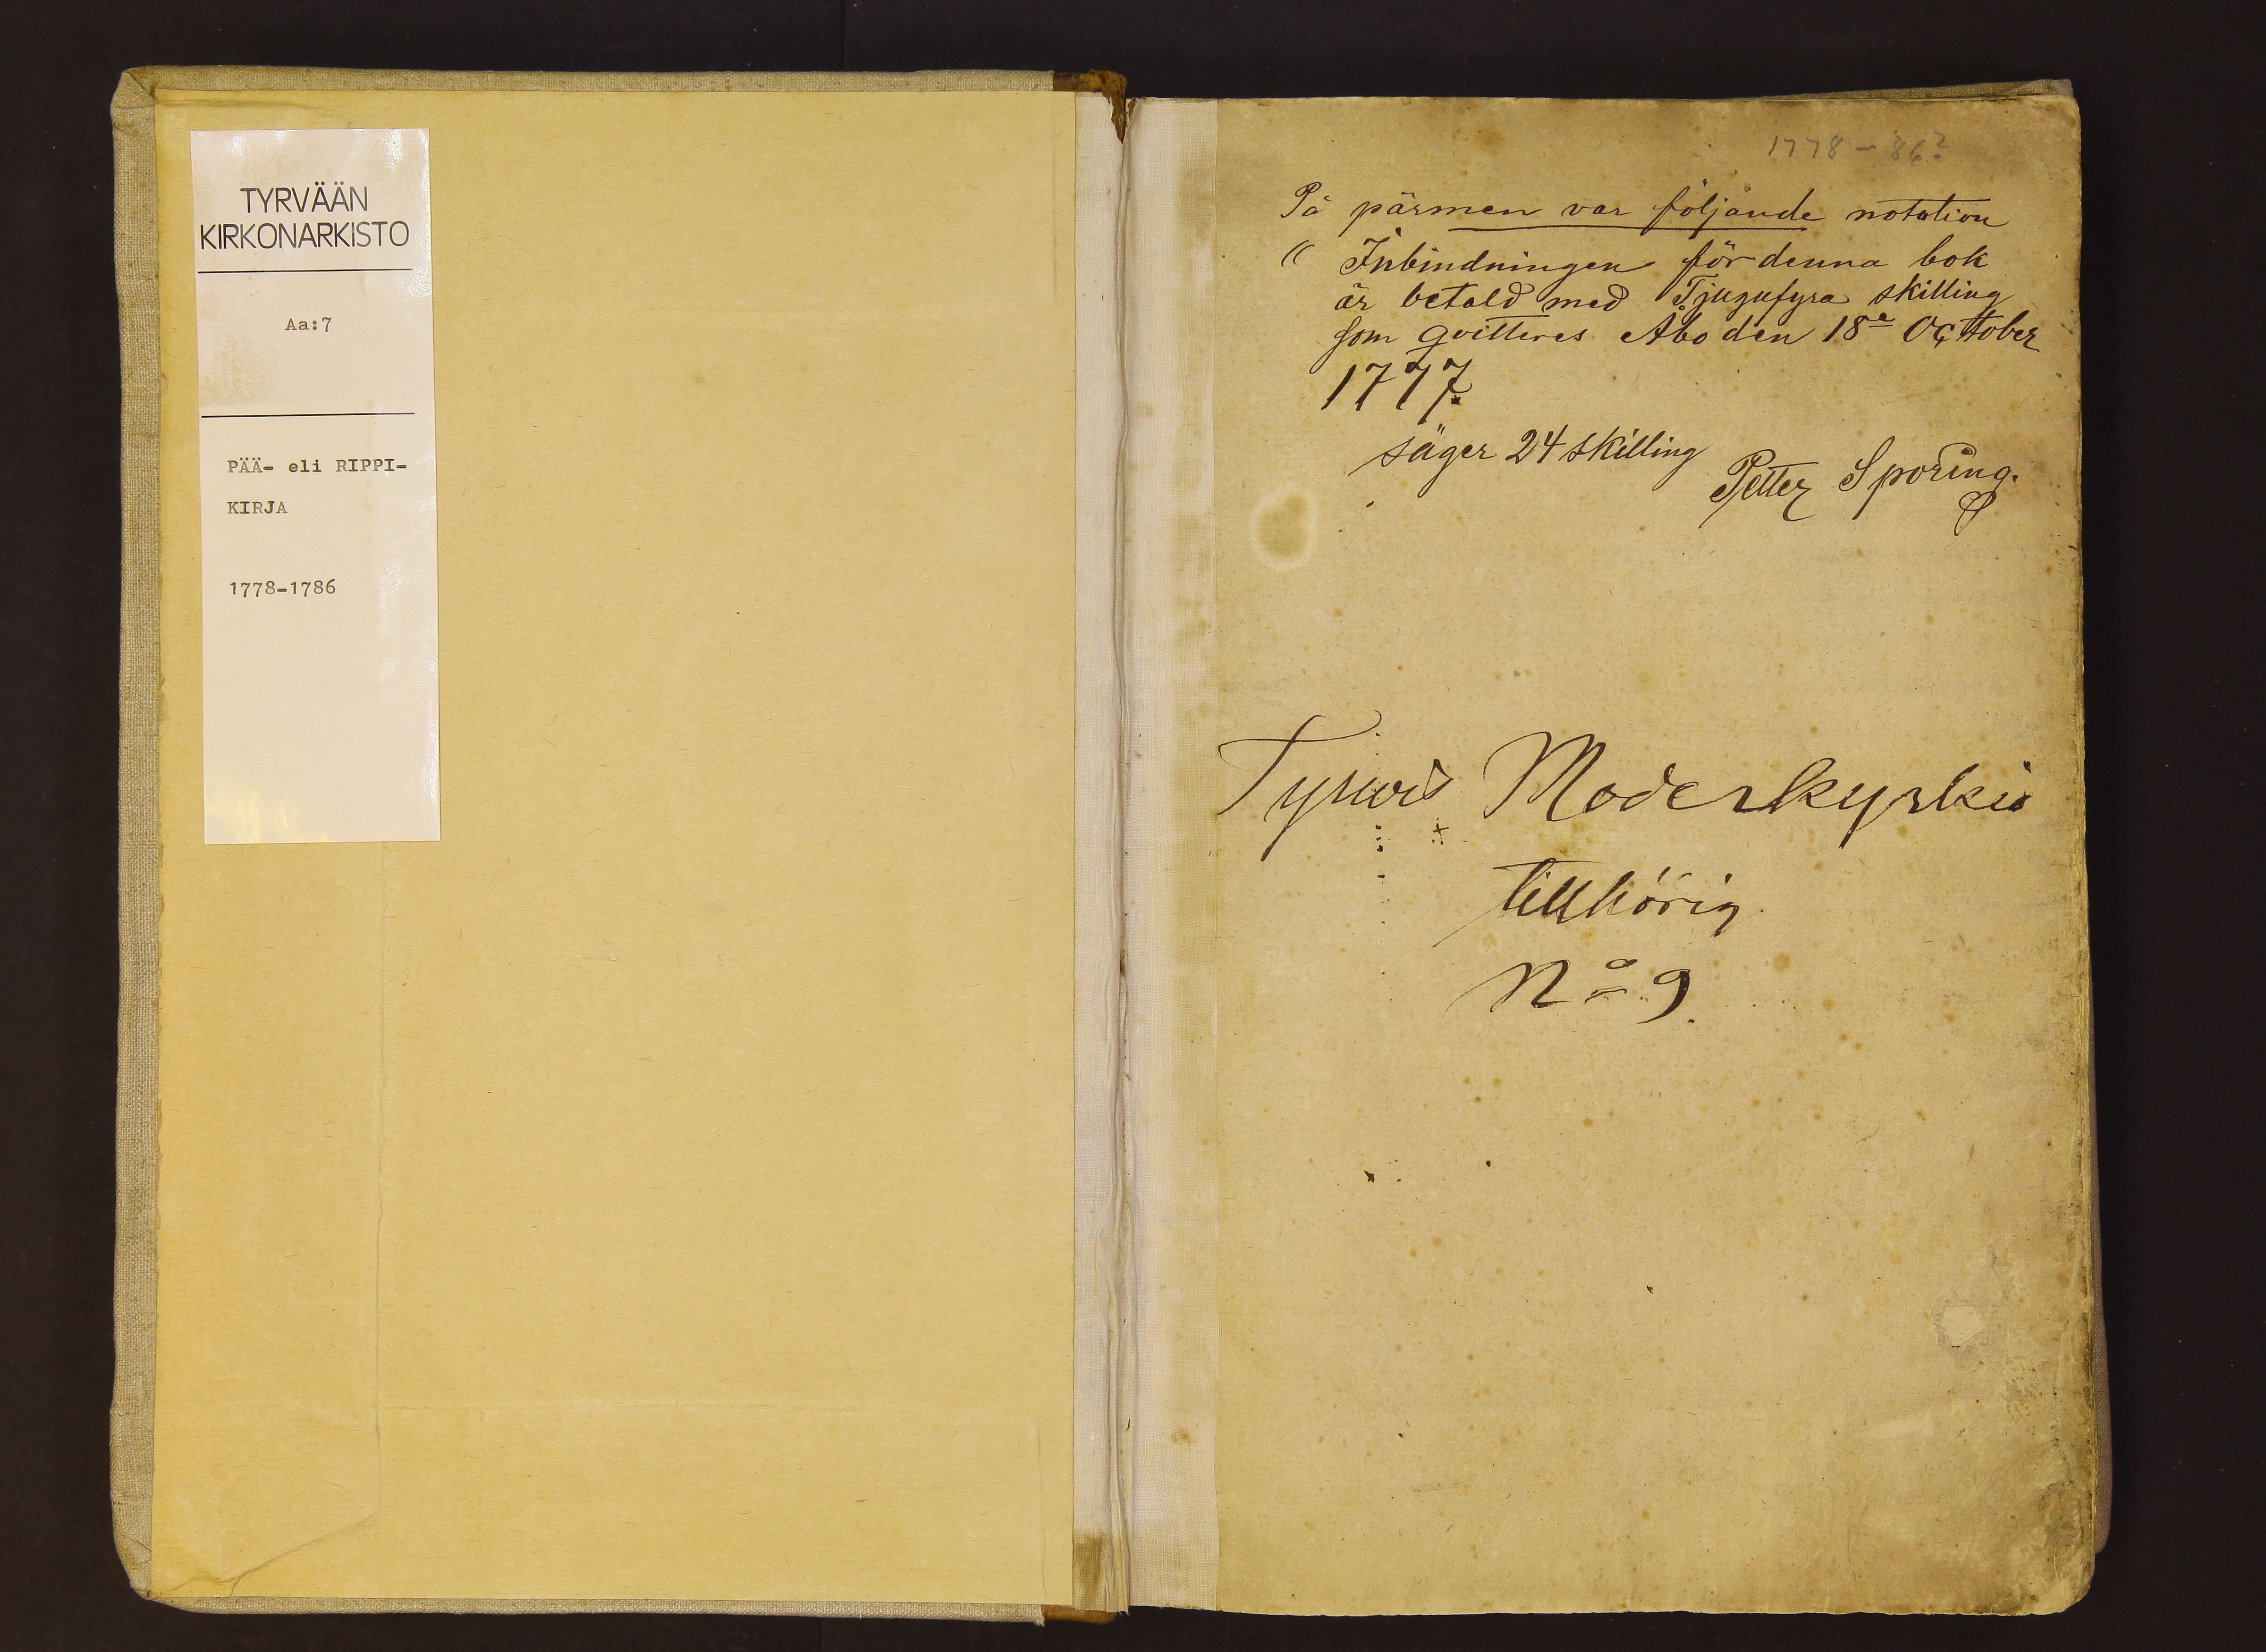 TYRVÄÄN
KIRKONARKISTO
Aa:7
PÄÄ- eli RIPPI-
KIRJA
1778-1786
1778-86?
På pärmen var följande notation
" Inbindningen för denna bok
är betald med Tjugufyra skilling
som qvitteres Åbo den 18e October
1777.
säger 24 skilling
Petter Sporing.
Tyrvis Moderkyrka
tillhörig
No 9.